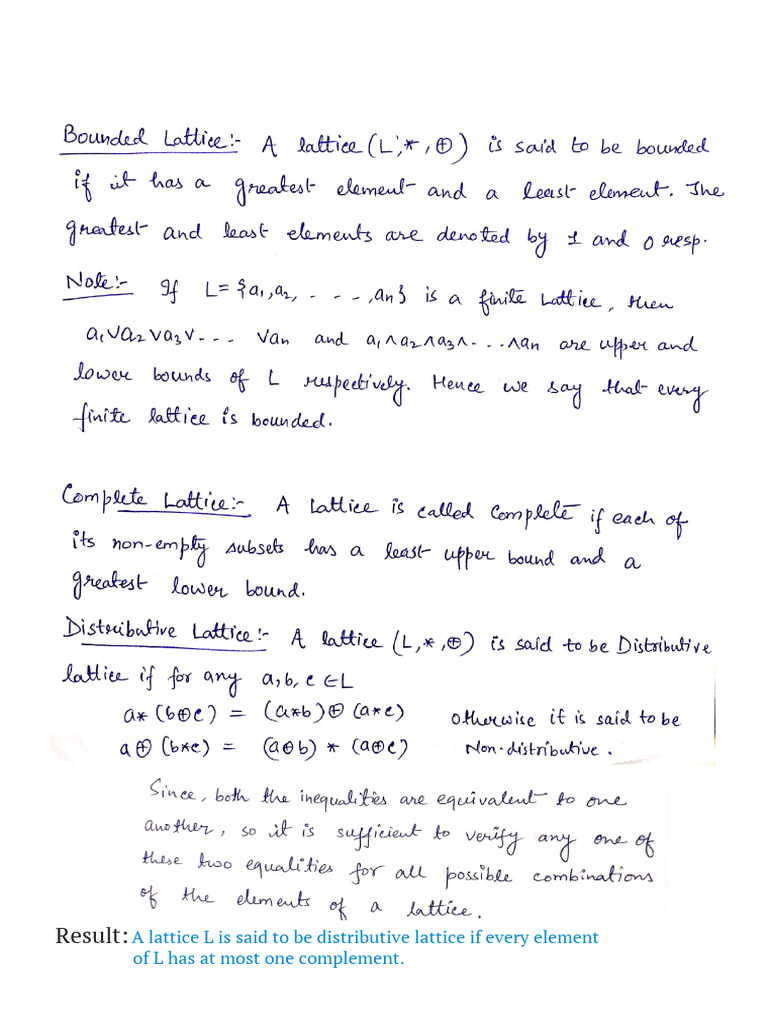 Bounded Lattice:- A lattice (L, *, ⊕) is said to be bounded
if it has a greatest element and a least element. The
greatest and least elements are denoted by 1 and 0 resp.
Note:- If L = {a₁, a₂, . . . ., aₙ} is a finite Lattice, then
a₁∨a₂∨a₃∨- . . . ∨aₙ and a₁∧a₂∧a₃∧- . . . ∧aₙ are upper and
lower bounds of L respectively. Hence we say that every
finite lattice is bounded.
Complete Lattice:- A Lattice is called complete if each of
its non-empty subsets has a least upper bound and a
greatest lower bound.
Distributive Lattice:- A lattice (L, *, ⊕) is said to be Distributive
lattice if for any a, b, c ∈ L
a * (b ⊕ c) = (a * b) ⊕ (a * c) Otherwise it is said to be
a ⊕ (b * c) = (a ⊕ b) * (a ⊕ c) Non-distributive.
Since, both the inequalities are equivalent to one
another, so it is sufficient to verify any one of
these two equalities for all possible combinations
of the elements of a lattice.
Result: A lattice L is said to be distributive lattice if every element
of L has at most one complement.